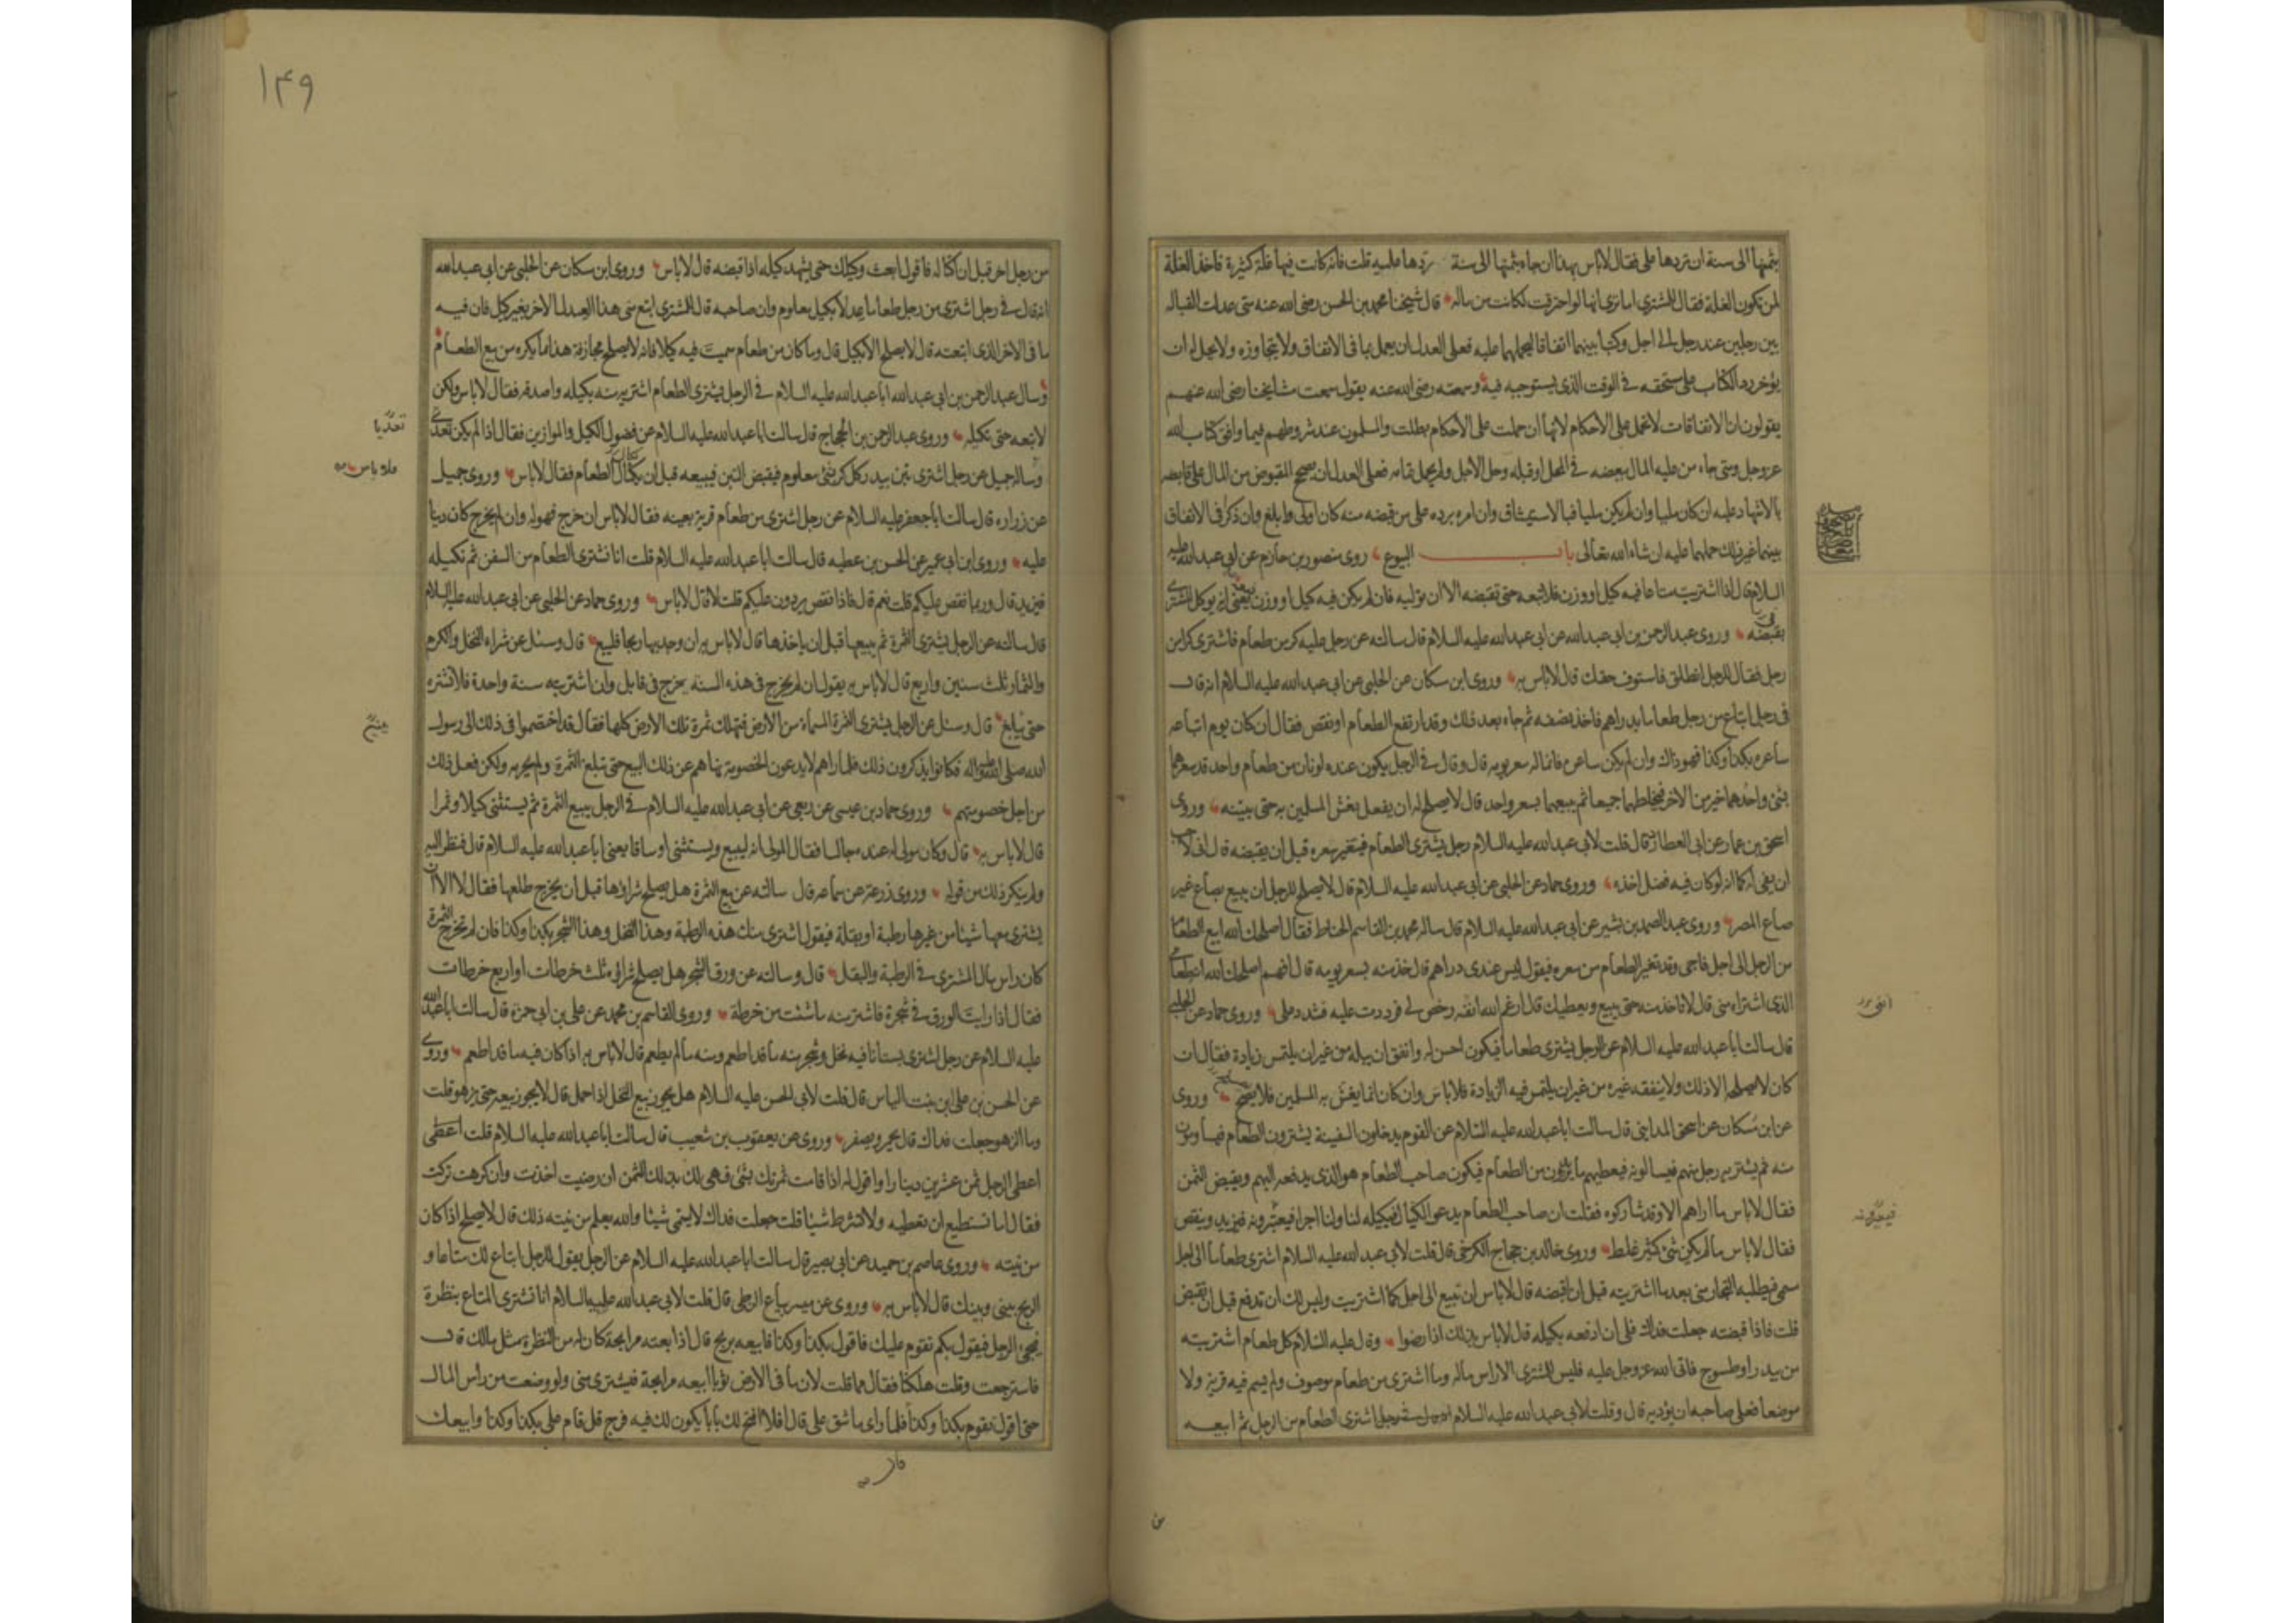 بثمنها الى سنة ان تردها على فقال لا باس بهذا ان جاء بثمنها الى سنة ردها عليه قلت فانه كانت فيها غلة كثيرة فاخذ الغلة
لمن تكون الغلة فقال للمشترى اما ترى انها لو احترقت لكانت من ماله قال شيخنا محمد بن الحسن رضى الله عنه متى عدلت القباله
بين رجلين عند رجل الى اجل وكتبا بينهما اتفاقا ليحملهما عليه فعلى العدل ان يعمل بما فى الاتفاق ولا يتجاوزه ولا يحل له ان
يؤخر رد الكتاب على مستحقه فى الوقت الذى يستوجبه فيه وسمعته رضى الله عنه يقول سمعت مشايخنا رضى الله عنهم
يقولون ان الاتفاقات لا تحمل على الاحكام لانها ان حملت على الاحكام بطلت والمسلمون عند شروطهم فيما وافق كتاب الله
عز وجل ومتى جاء من عليه المال ببعضه فى المحل او قبله وحل الاجل ولم يحمل تمامه فعلى العدل ان يصحح المقبوض من المال على قابضه
بالاشهاد عليه ان كان مليا وان لم يكن مليا فبالاستيثاق وان امره برده على من قبضه منه كان اولى وابلغ وان ذكر فى الاتفاق
بينهما غير ذلك حملهما عليه ان شاء الله تعالى باب البيوع روى منصور بن حازم عن ابى عبد الله عليه
السلام قال اذا اشتريت متاعا فيه كيل او وزن فلا تبعه حتى تقبضه الا ان توليه فان لم يكن فيه كيل او وزن فبعه يعنى انه يوكل المشترى
بقبضه وروى عبد الرحمن بن ابى عبد الله عن ابى عبد الله عليه السلام قال سالته عن رجل عليه كر من طعام فاشترى كرا من
رجل فقال للرجل انطلق فاستوف حقك قال لا باس به وروى ابن مسكان عن الحلبى عن ابى عبد الله عليه السلام انه قال
فى رجل ابتاع من رجل طعاما بدراهم فاخذ نصفه ثم جاء بعد ذلك وقد ارتفع الطعام او نقص فقال ان كان يوم ابتاعه
ساعره بكذا وكذا فهو ذاك وان لم يكن ساعره فانما له سعر يومه قال وقال فى الرجل يكون عنده لونان من طعام واحد قد سعرهما
بشئ واحدهما خير من الاخر فيخلطهما جميعا ثم يبيعهما بسعر واحد قال لا يصلح له ان يفعل يغش المسلمين به حتى يبينه وروى
اسحق بن عمار عن ابى العطارد قال قلت لابى عبد الله عليه السلام رجل يشترى الطعام فيتغير سعره قبل ان يقبضه قال انى لاحب
ان يفى له كما انه لو كان فيه فضل اخذه وروى حماد عن الحلبى عن ابى عبد الله عليه السلام قال لا يصلح للرجل ان يبيع بصاع غير
صاع المصر وروى عبد الصمد بن بشير عن ابى عبد الله عليه السلام قال ساله محمد بن القاسم الحناط فقال اصلحك الله ابيع الطعام
من الرجل الى اجل فاجى وقد تغير الطعام من سعره فيقول ليس عندى دراهم قال خذ منه بسعر يومه قال افهم اصلحك الله انه طعامى
الذى اشتراه منى قال لا تاخذ منه حتى يبيع ويعطيك قال ارغم الله انفه رخص لى فرددت عليه فشدد على وروى حماد عن الحلبى
قال سالت ابا عبد الله عليه السلام عن الرجل يشترى طعاما فيكون احسن له وانفق ان يبله من غير ان يلتمس زيادة فقال ان
كان لا يصلحه الا ذلك ولا ينفقه غيره من غير ان يلتمس فيه الزيادة فلا باس وان كان انما يغش به المسلمين فلا يصلح وروى
عن ابن مسكان عن اسحق المداينى قال سالت ابا عبد الله عليه السلام عن القوم يدخلون السفينة يشترون الطعام فيساومون
منه ثم يشتريه رجل منهم فيسالونه فيعطيهم ما يريدون من الطعام فيكون صاحب الطعام هو الذى يدفعه اليهم ويقبض الثمن
فقال لا باس ما اراهم الا وقد شاركوه فقلت ان صاحب الطعام يدعو الكيال فيكيله لنا ولنا اجراء فيعيرونه فيزيد وينقص
فقال لا باس ما لم يكن شئ كثير غلط وروى خالد بن حجاج الكرخى قال قلت لابى عبد الله عليه السلام اشترى طعاما الى اجل
مسمى فيطلبه التجار منى بعد ما اشتريته قبل ان اقبضه قال لا باس ان تبيع الى اجل كما اشتريت وليس لك ان تدفع قبل ان تقبض
قلت فاذا قبضته جعلت فداك فلى ان ادفعه بكيله قال لا باس بذلك اذا رضوا وقال عليه السلام كل طعام اشتريته
من بيدر او طسوج فاتى الله عز وجل عليه فليس للمشترى الا راس ماله وما اشترى من طعام موصوف ولم يسم فيه قرية ولا
موضعا فعلى صاحبه ان يؤديه قال وقلت لابى عبد الله عليه السلام اشترى الطعام من الرجل ثم ابيعه
انفى
فيعيرونه
١۴٩
من رجل اخر قبل ان اكتاله فاقول ابعث وكيلك حتى يشهد كيله اذا قبضته قال لا باس وروى ابن مسكان عن الحلبى عن ابى عبد الله
انه قال فى رجل اشترى من رجل طعاما عدلا بكيل معلوم وان صاحبه قال للمشترى ابتع منى هذا العدل الاخر بغير كيل فان فيه
ما فى الاخر الذى ابتعته قال لا يصلح الا بكيل قال وما كان من طعام سميت فيه كيلا فانه لا يصلح مجازفة هذا ما يكره من بيع الطعام
وسال عبد الرحمن بن ابى عبد الله ابا عبد الله عليه السلام فى الرجل يشترى الطعام اشتريه منه بكيله واصدقه فقال لا باس ولكن
لا تبعه حتى تكيله وروى عبد الرحمن بن الحجاج قال سالت ابا عبد الله عليه السلام عن فضول الكيل والموازين فقال اذا لم يكن تعدى
وساله جميل عن رجل اشترى تبن بيدر كل كر بشئ معلوم فيقبض التبن فيبيعه قبل ان يكتال الطعام فقال لا باس وروى جميل
عن زراره قال سالت ابا جعفر عليه السلام عن رجل اشترى من طعام قرية بعينه فقال لا باس ان خرج فهو له وان لم يخرج كان دينا
عليه وروى ابن ابى عمير عن الحسن بن عطيه قال سالت ابا عبد الله عليه السلام قلت انا نشترى الطعام من السفن ثم نكيله
فيزيد قال وربما نقص عليكم قلت نعم قال فاذا نقص يردون عليكم قلت لا قال لا باس وروى حماد عن الحلبى عن ابى عبد الله عليه السلام
قال سالته عن الرجل يشترى الثمرة ثم يبيعها قبل ان ياخذها قال لا باس به ان وجد بها ربحا فليبع قال وسئل عن شراء النخل والكرم
والثمار ثلث سنين واربع قال لا باس به يقول ان لم يخرج فى هذه السنه يخرج فى قابل وان اشتريته سنة واحدة فلا تشتره
حتى يبلغ قال وسئل عن الرجل يشترى الثمرة المسماة من الارض فتهلك ثمرة تلك الارض كلها فقال قد اختصموا فى ذلك الى رسول
الله صلى الله عليه واله فكانوا يذكرون ذلك فلما راهم لا يدعون الخصومة نهاهم عن ذلك البيع حتى تبلغ الثمرة ولم يحرمه ولكن فعل ذلك
من اجل خصومتهم وروى حماد بن عيسى عن ربعى عن ابى عبد الله عليه السلام فى الرجل يبيع الثمرة ثم يستثنى كيلا وتمرا
قال لا باس به قال وكان مولى له عنده جالسا فقال المولى انه ليبيع ويستثنى اوساقا يعنى ابا عبد الله عليه السلام قال فنظر اليه
ولم ينكر ذلك من قوله وروى زرعة عن سماعه قال سالته عن بيع الثمرة هل يصلح شراؤها قبل ان يخرج طلعها فقال لا الا ان
يشترى معها شيئا من غيرها رطبة او بقلة فيقول اشترى منك هذه الرطبة وهذا النخل وهذا الشجر بكذا وكذا فان لم تخرج الثمرة
كان راس مال المشترى فى الرطبة والبقل قال وسالته عن ورق الشجر هل يصلح شرائه ثلث خرطات او اربع خرطات
فقال اذا رايت الورق فى شجرة فاشتر منه ما شئت من خرطة وروى القاسم بن محمد عن على بن ابى حمزه قال سالت ابا عبد الله
عليه السلام عن رجل اشترى بستانا فيه نخل وشجر منه ما قد اطعم ومنه ما لم يطعم قال لا باس به اذا كان فيه ما قد اطعم وروى
عن الحسن بن على ابن بنت الياس قال قلت لابى الحسن عليه السلام هل يجوز بيع النخل اذا حمل قال لا يجوز بيعه حتى يزهو قلت
وما الزهو جعلت فداك قال يحمر ويصفر وروى عن يعقوب بن شعيب قال سالت ابا عبد الله عليه السلام قلت اعطى
اعطى الرجل ثمن عشرين دينارا واقول له اذا قامت ثمرتك بشئ فهى لك بذلك الثمن ان رضيت اخذت وان كرهت تركت
فقال اما تستطيع ان تعطيه ولا تشترط شيئا قلت جعلت فداك لا يسمى شيئا والله يعلم من نيته ذلك قال لا يصلح اذا كان
من نيته وروى عاصم بن حميد عن ابى بصير قال سالت ابا عبد الله عليه السلام عن الرجل يقول للرجل ابتاع لك متاعا و
الربح بينى وبينك قال لا باس به وروى عن ميسر بياع الزطى قال قلت لابى عبد الله عليه السلام انا نشترى المتاع بنظرة
فيجئ الرجل فيقول بكم تقوم عليك فاقول بكذا وكذا فابيعه بربح قال اذا بعته مرابحة كان له من النظرة مثل مالك قال
فاسترجعت وقلت هلكنا فقال مما قلت لان ما فى الارض ثوبا ابيعه مرابحة فيشترى منى ولو وضعت من رأس المال
حتى اقول تقوم بكذا وكذا فلما راى ما شق على قال افلا افتح لك بابا يكون لك فيه فرج قل قام على بكذا وكذا وابيعك
تعديا
فلا باس